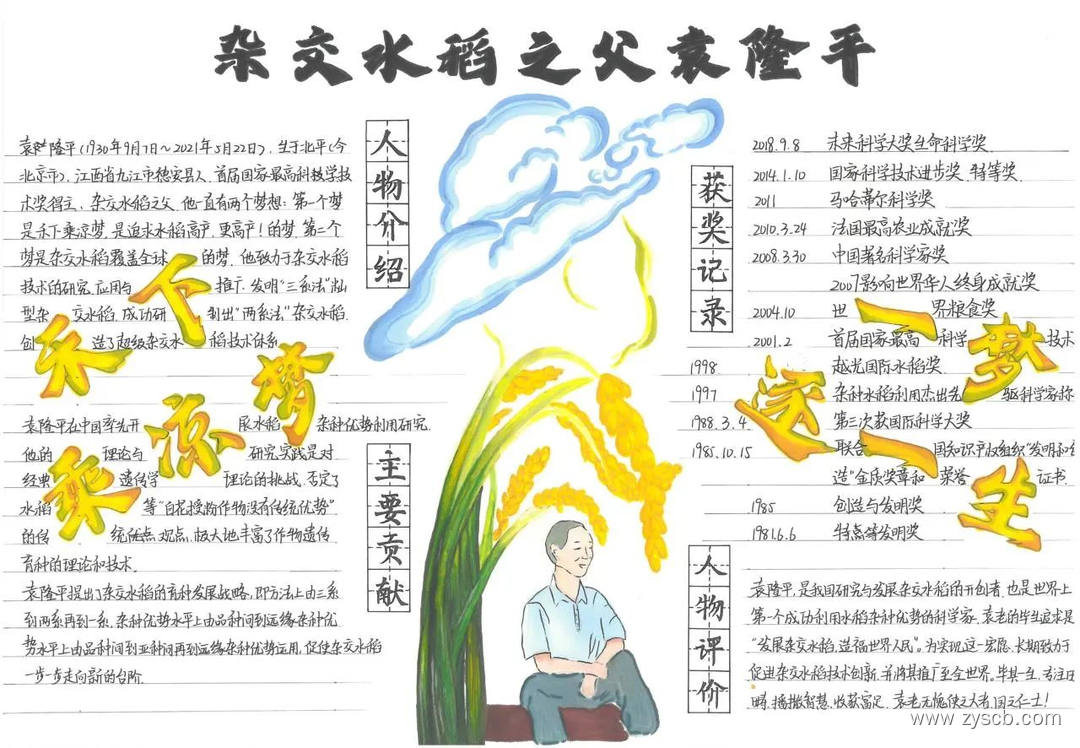 杂交水稻之父袁隆平
人物介绍
袁隆平(1930年9月7日~2021年5月22日),生于北平(今
北京市),江西省九江市德安县人,首届国家最高科技学技
术奖得主,杂交水稻之父,他一直有两个梦想:第一个梦
是禾下乘凉梦,是追求水稻高产,更高产!的梦,第二个
梦是杂交水稻覆盖全球的梦,他致力于杂交水稻
技术的研究、应用与推广,发明"三系法"籼
型杂交水稻,成功研制出"两系法"杂交水稻,
创造了超级杂交水稻技术体系
禾下
乘凉梦
主要贡献
袁隆平在中国率先开展水稻杂种优势利用研究,
他的理论与研究实践是对
经典遗传学理论的挑战,否定了
水稻等"自花授粉作物没有杂种优势"
的传统观点,极大地丰富了作物遗传
育种的理论和技术.
袁隆平提出了杂交水稻的育种发展战略,即方法上由三系
到两系再到一系,杂种优势水平上由品种间到远缘杂种优
势水平上由品种间到亚种间再到远缘杂种优势运用,促使杂交水稻
一步一步走向新的台阶.
获奖记录
2018.9.8 未来科学大奖生命科学奖
2014.1.10 国家科学技术进步奖 特等奖
2011 马哈蒂尔科学奖
2010.3.24 法国最高农业成就奖
2008.3.30 中国著名科学家奖
2007影响世界华人终身成就奖
2004.10 世界粮食奖
2001.2 首届国家最高科学技术
1998 越光国际水稻奖
1997 杂种水稻利用杰出先驱科学家称
1988.3.4 第三次获国际科学大奖
1985.10.15 联合国知识产权组织"发明和创
造"金质奖章和荣誉证书
1985 创造与发明奖
1981.6.6 特等发明奖
一梦
逐一生
人物评价
袁隆平,是我国研究与发展杂交水稻的开创者,也是世界上
第一个成功利用水稻杂种优势的科学家,袁老的毕生追求是
"发展杂交水稻,造福世界人民",为实现这一宏愿,长期致力于
促进杂交水稻技术创新,并将其推广至全世界,毕其一生,专注田
畴,播撒智慧,收获富足,袁老无愧侠之大者,国之仁士!
www.zyscb.com